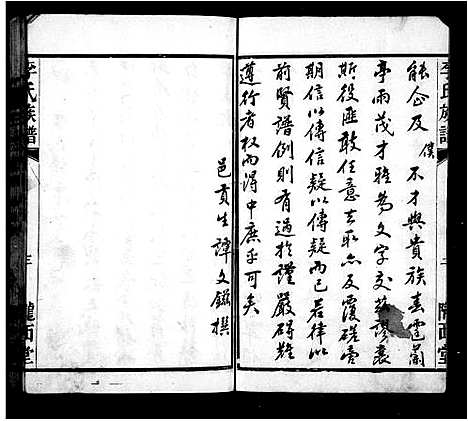 李氏族譜
三
隴西堂
能企及僕不才與貴族春霆蘭
亭雨茂才雅為文字交茲謬襄
斯役匪敢任意去取亦及覆磋商
期信以傳信疑以傳疑而已若律以
前賢譜例則有過於謹嚴碍難
遵行者权而得中庶乎可矣
邑貢生譚文鎰撰
李氏族譜
三
隴西堂